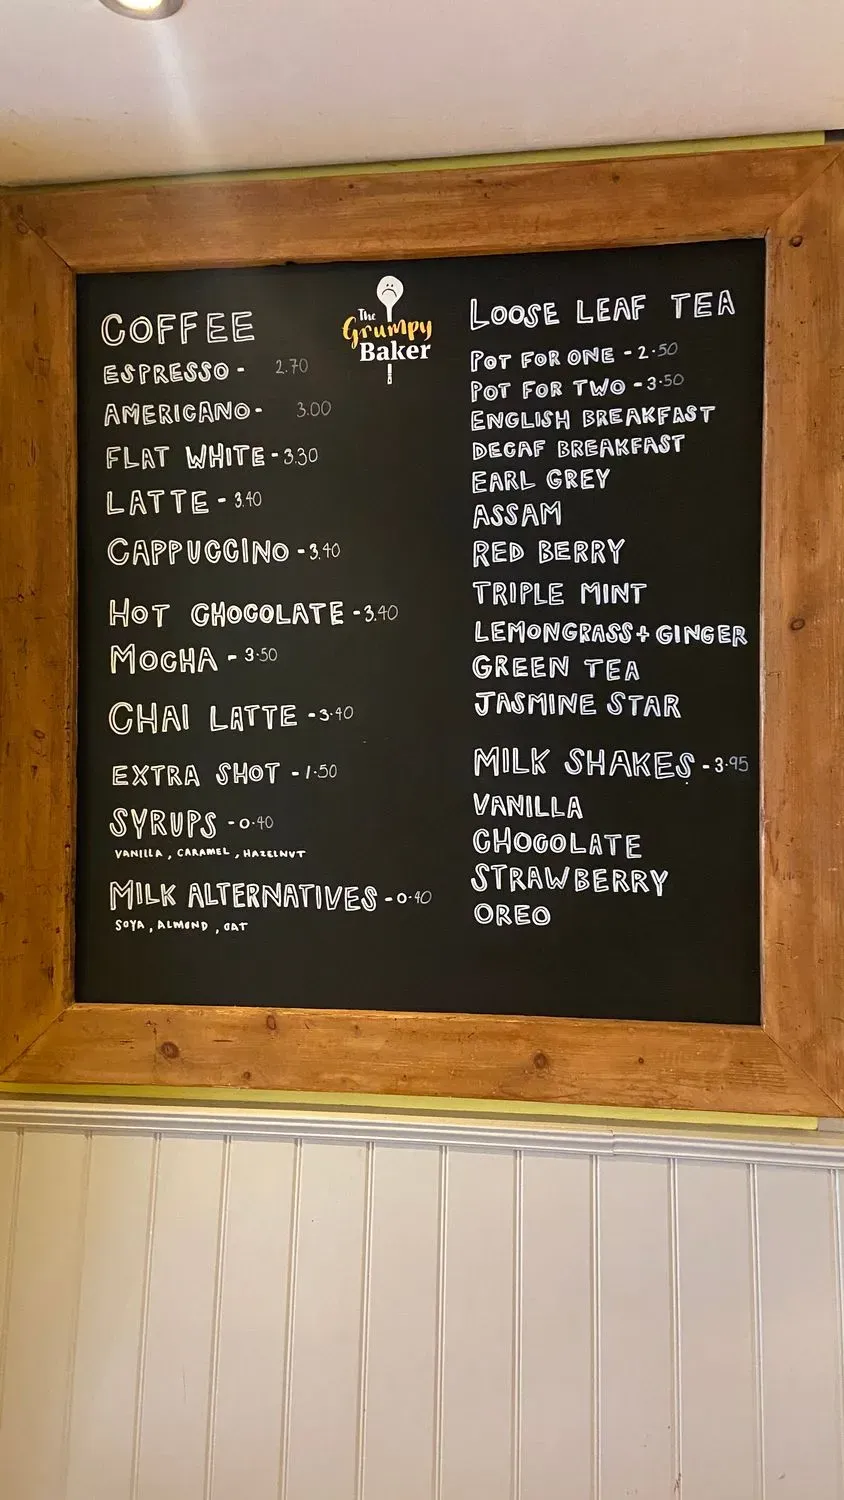 The
Grumpy
Baker
COFFEE
ESPRESSO - 2.70
AMERICANO - 3.00
FLAT WHITE - 3.30
LATTE - 3.40
CAPPUCCINO - 3.40
HOT CHOCOLATE - 3.40
MOCHA - 3.50
CHAI LATTE - 3.40
EXTRA SHOT - 1.50
SYRUPS - 0.40
VANILLA, CARAMEL, HAZELNUT
MILK ALTERNATIVES - 0.40
SOYA, ALMOND, OAT
LOOSE LEAF TEA
POT FOR ONE - 2.50
POT FOR TWO - 3.50
ENGLISH BREAKFAST
DECAF BREAKFAST
EARL GREY
ASSAM
RED BERRY
TRIPLE MINT
LEMONGRASS + GINGER
GREEN TEA
JASMINE STAR
MILK SHAKES - 3.95
VANILLA
CHOCOLATE
STRAWBERRY
OREO